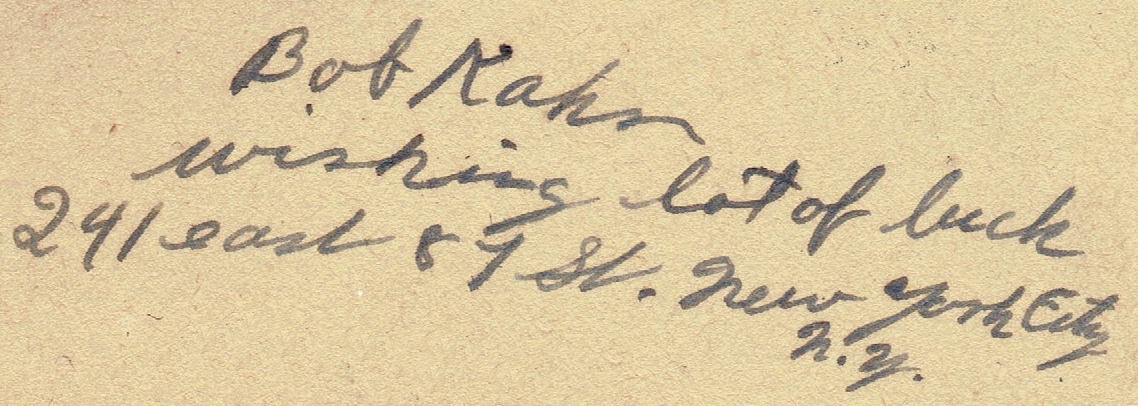 Bob Kahn
wishing lot of luck
241 east 87 St. New York City
N.Y.